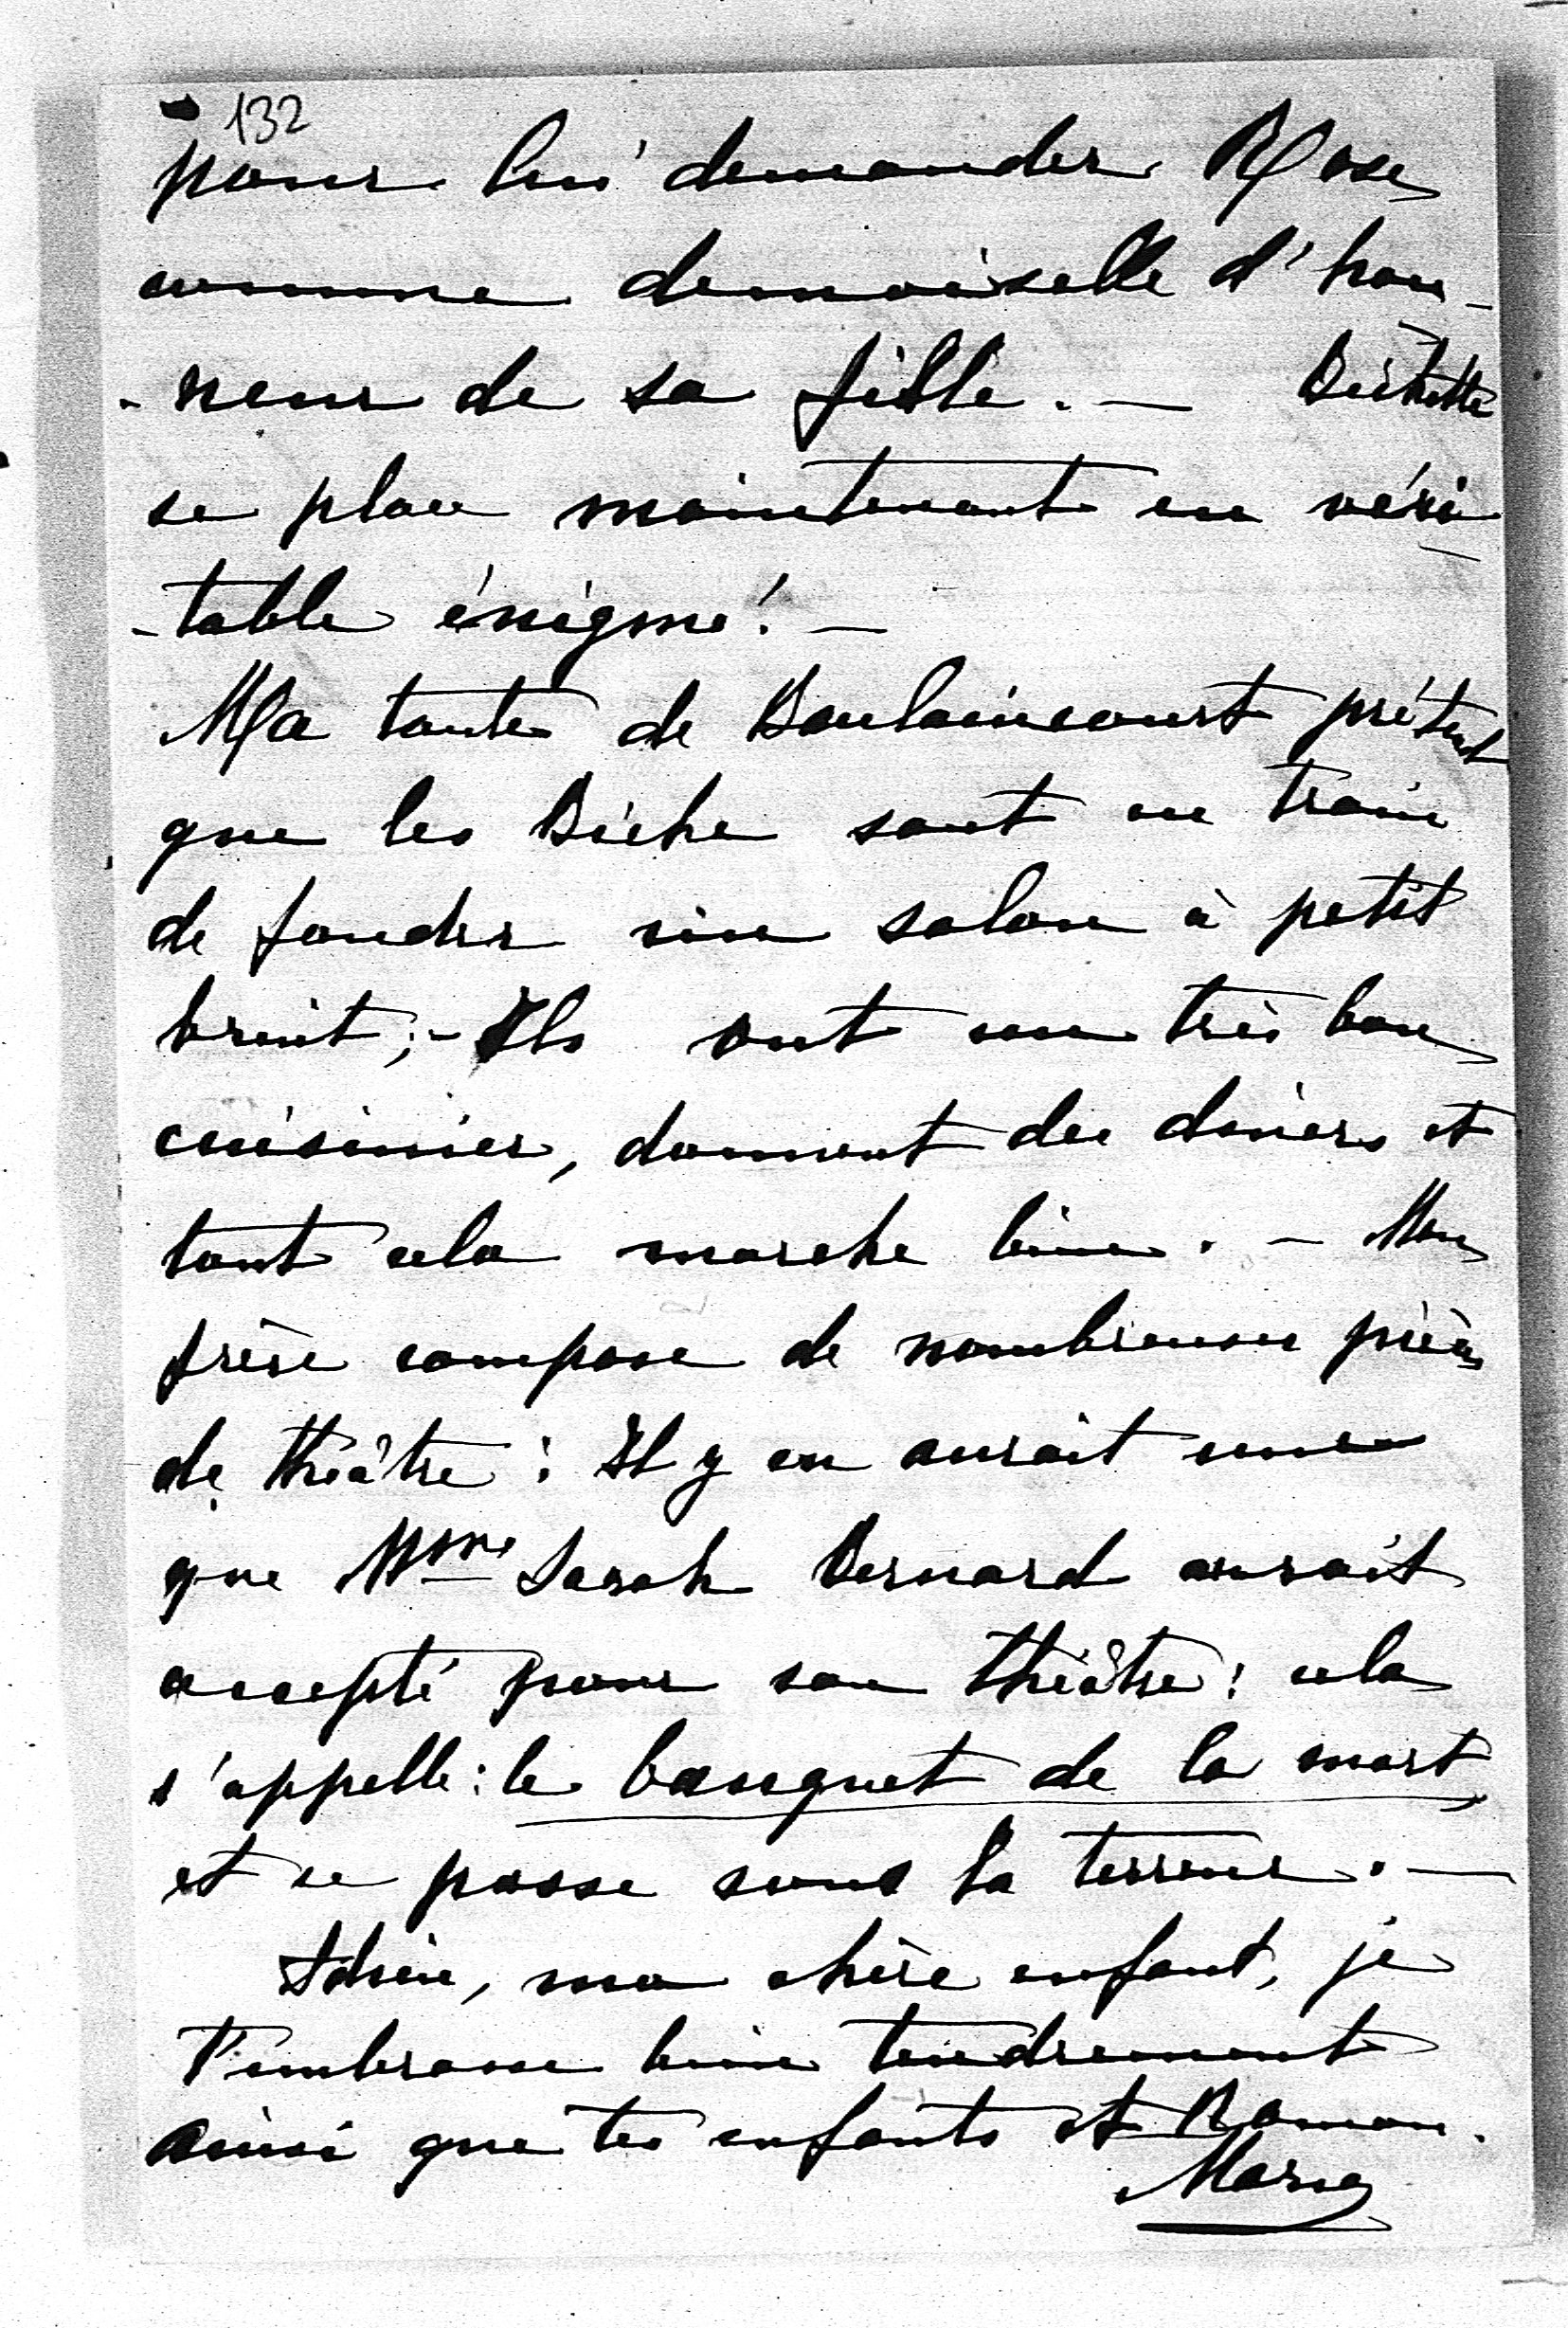 132
pour lui demander Rose
comme demoiselle d'hon-
-neur de sa fille. — Bichette
se place maintenant en véri
-table énigme! —
Ma tante de Boulaincourt prétend
que les Biche sont en train
de fonder un salon à petit
bruit; - Ils ont un très bon
cuisinier, donnent des diners et
tout cela marche bien. - Mon
frère compose de nombreuses pièces
de théâtre: Il y en aurait une
que Mme Sarah Bernard aurait
accepté pour son théâtre: cela
s'appelle: le banquet de la mort
et se passe sous la terreur. —
Adieu, ma chère enfant, je
t'embrasse bien tendrement
ainsi que tes enfants et Ramon.
Marie